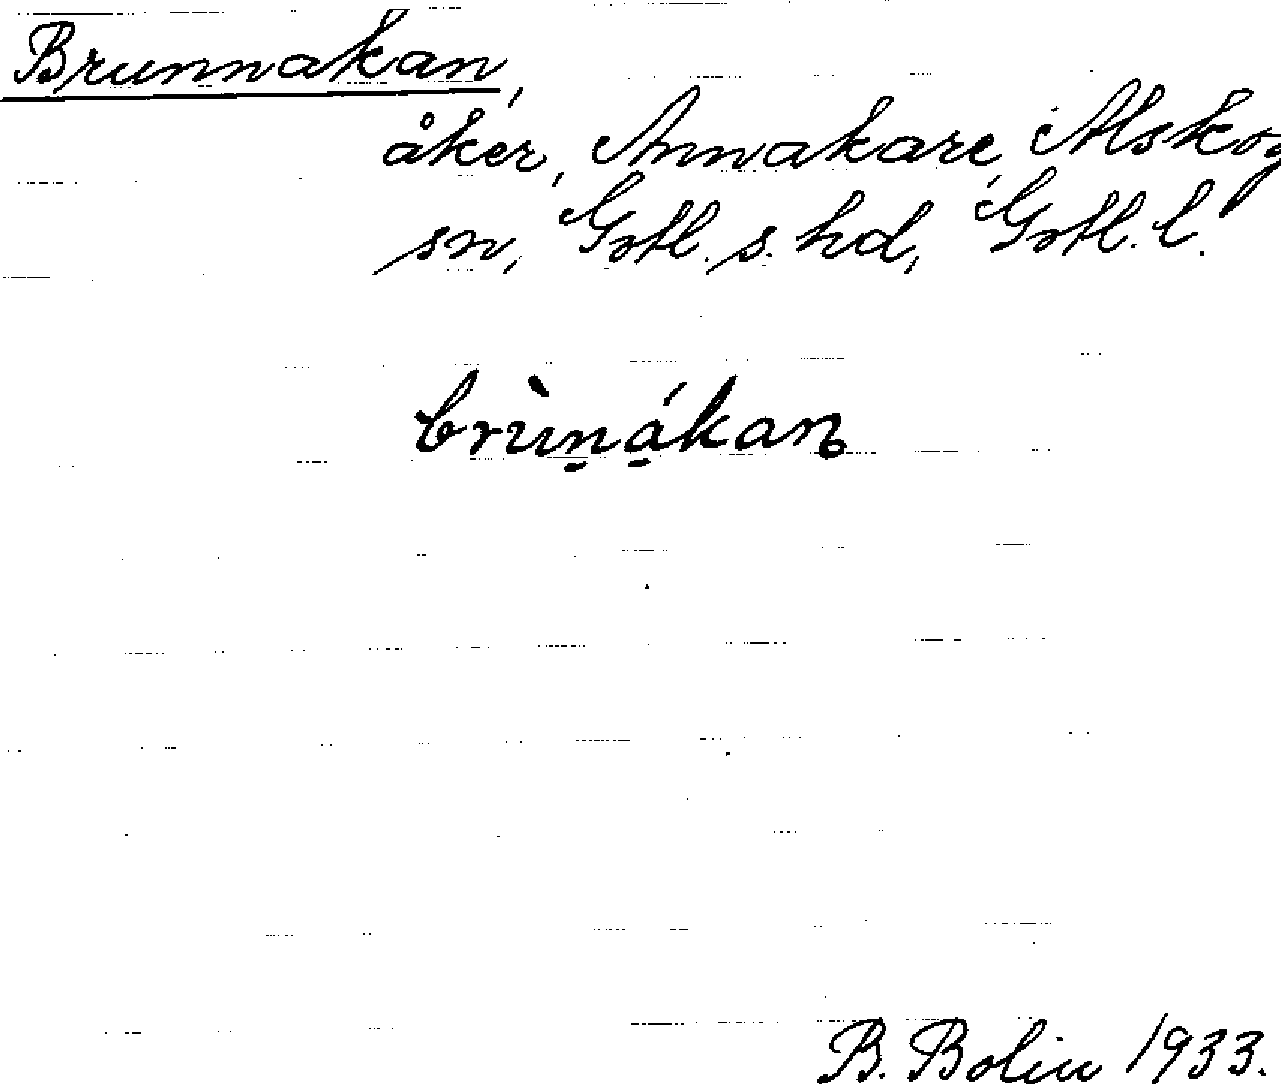 Brunnakan,
åker, Annakare, Alskog
sn, Gotl. s. hd, Gotl. l.
brùn̠á̠kan
B. Bolin 1933.